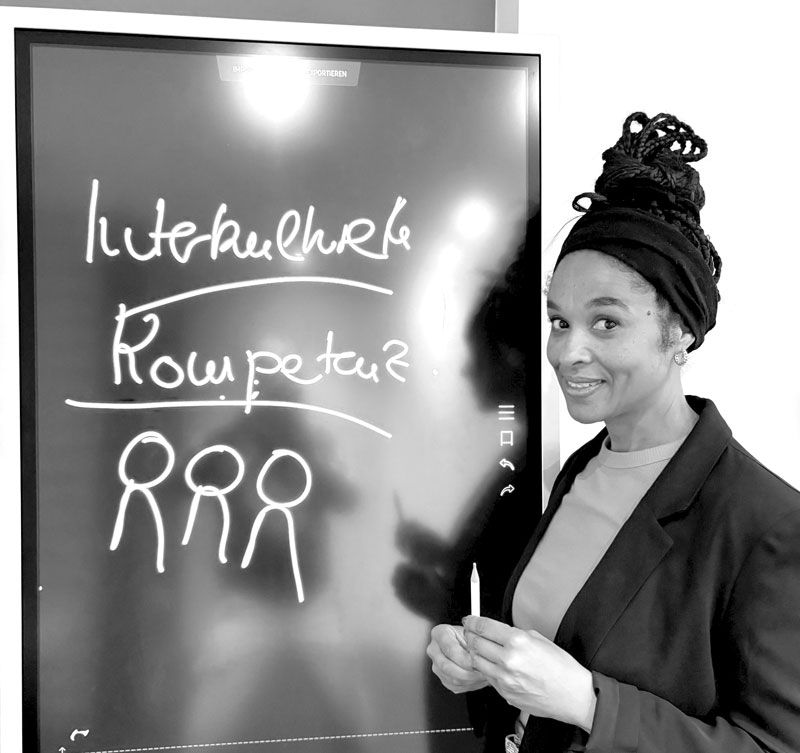 EXPORTIEREN
Interkulturelle
Kompetenz